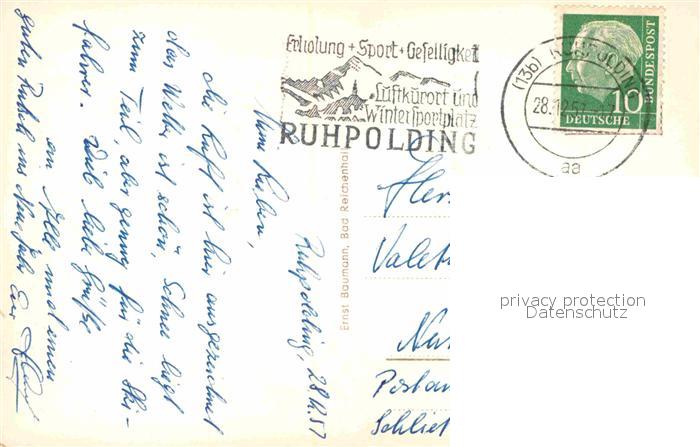 Erholung + Sport + Geselligkeit
Luftkurort und
Wintersportplatz
RUHPOLDING
(13b) RUHPOLDING
28.12.57
aa
10
DEUTSCHE
BUNDESPOST
Ernst Baumann, Bad Reichenhall
Ruhpolding, 28.12.57
Meine Lieben,
die Luft ist hier ausgezeichnet
das Wetter ist schön, Schnee liegt
zum Teil, aber genug für die Ski-
fahrer. Viele liebe Grüße
an Alle und einen
guten Rutsch ins Neue Jahr Eur
Valet
Postan
Schließ
privacy protection
Datenschutz